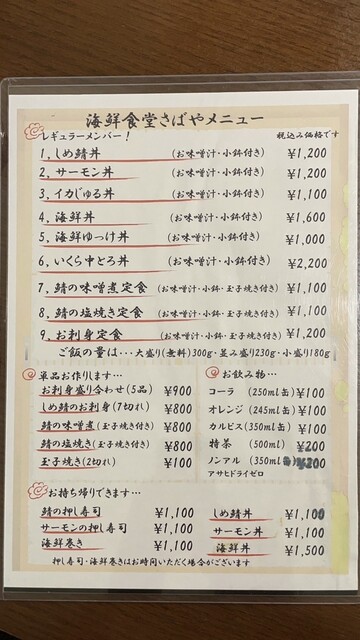 海鮮食堂さばやメニュー
レギュラーメンバー！ 税込み価格です
1,しめ鯖丼 (お味噌汁・小鉢付き) ¥1,200
2,サーモン丼 (お味噌汁・小鉢付き) ¥1,200
3,イカじゅる丼 (お味噌汁・小鉢付き) ¥1,100
4,海鮮丼 (お味噌汁・小鉢付き) ¥1,600
5,海鮮ゆっけ丼 (お味噌汁・小鉢付き) ¥1,000
6,いくら中とろ丼 (お味噌汁・小鉢付き) ¥2,200
7,鯖の味噌煮定食 (お味噌汁・小鉢・玉子焼き付き) ¥1,100
8,鯖の塩焼き定食 (お味噌汁・小鉢・玉子焼き付き) ¥1,100
9,お刺身定食 (お味噌汁・小鉢・玉子焼き付き) ¥1,200
ご飯の量は・・・大盛り(無料)300g・並み盛り230g・小盛り180g
単品お作りします…
お刺身盛り合わせ(5品) ¥900
しめ鯖のお刺身(7切れ) ¥800
鯖の味噌煮(玉子焼き付き) ¥800
鯖の塩焼き(玉子焼き付き) ¥800
玉子焼き(2切れ) ¥100
お飲み物…
コーラ (250ml缶) ¥100
オレンジ (245ml缶) ¥100
カルピス(350ml缶) ¥100
特茶 (500ml) ¥200
ノンアル (350ml缶) ¥200
アサヒドライゼロ
お持ち帰りできます…
鯖の押し寿司 ¥1,100
サーモンの押し寿司 ¥1,100
海鮮巻き ¥1,100
しめ鯖丼 ¥1,100
サーモン丼 ¥1,100
海鮮丼 ¥1,500
押し寿司・海鮮巻きはお時間いただく場合がございます